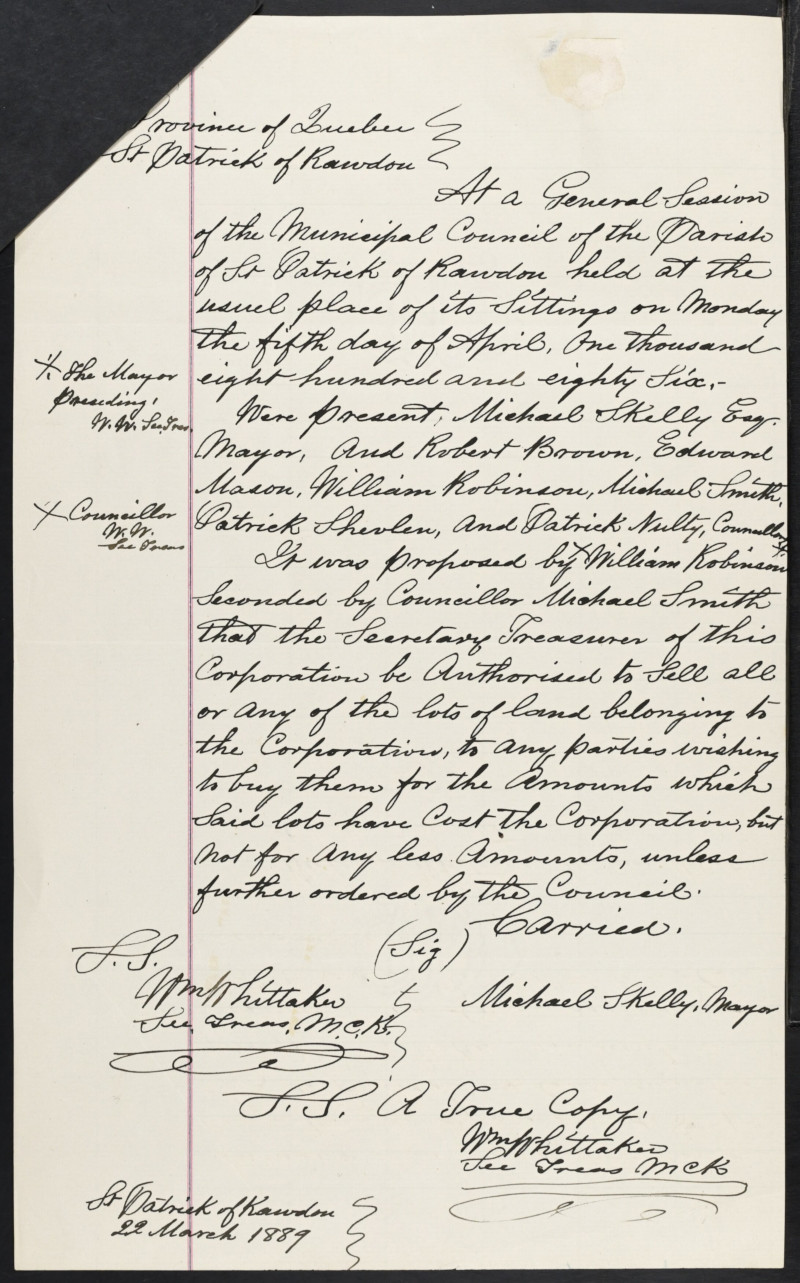 Province of Quebec
St Patrick of Rawdon
At a General Session
of the Municipal Council of the Parish
of St Patrick of Rawdon held at the
usuel place of its Sittings on Monday
the fifth day of April, One thousand
eight hundred and eighty Six,-
+. The Mayor
Preseding,
W. W. Sec, Tres.
Were present, Michael Skelly Esq.
Mayor, And Robert Brown, Edward
Mason, William Robinson, Michael Smith,
Patrick Shevlen, And Patrick Nulty, Councillors +.
+ Councillor
W. W.
Sec Treas
It was proposed by + William Robinson
Seconded by Councillor Michael Smith
that the Secretary Treasurer of this
Corporation be Authorised to Sell all
or any of the lots of land belonging to
the Corporation, to any parties wishing
to buy them for the Amounts which
Said lots have Cost the Corporation, but
not for Any less Amounts, unless
further ordered by the Council.
Carried.
(Sig)
S. S.
Wm Whittaker
Sec, Treas, M.C.R.
Michael Skelly, Mayor
S. S. A True Copy,
Wm Whittaker
Sec Treas MCR
St Patrick of Rawdon
22 March 1889